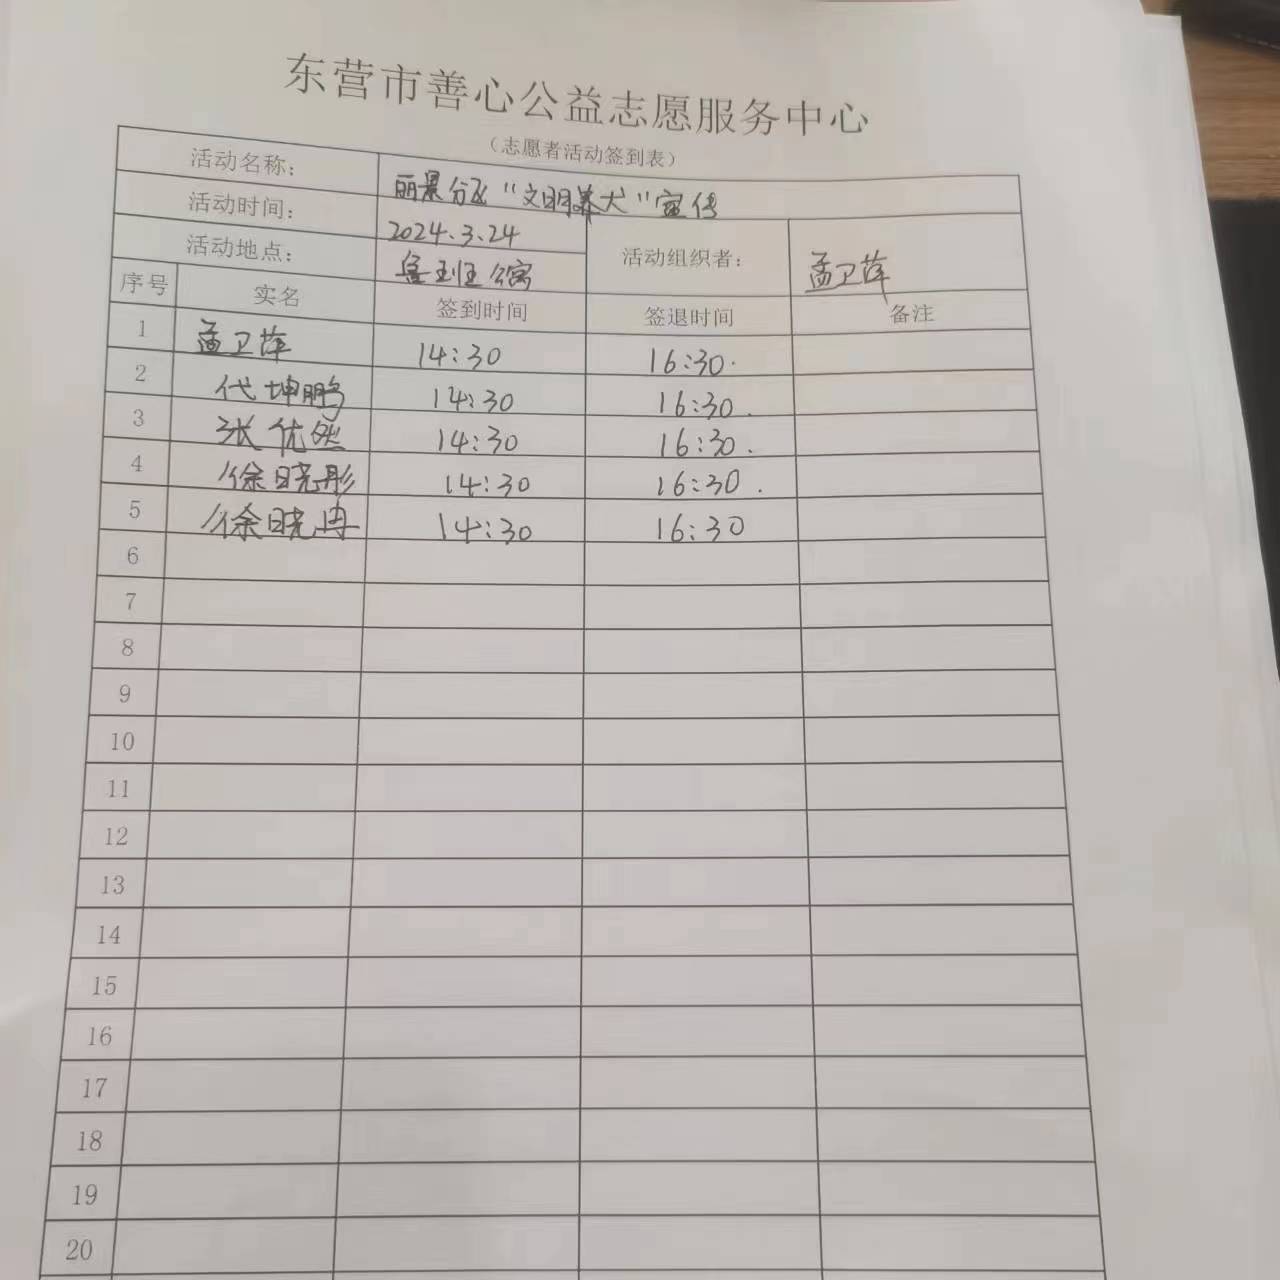 东营市善心公益志愿服务中心
（志愿者活动签到表）
活动名称： 丽景分区“文明养犬”宣传
活动时间： 2024.3.24
活动地点： 鲁班公寓 活动组织者： 孟卫萍
序号 实名 签到时间 签退时间 备注
1 孟卫萍 14:30 16:30.
2 代坤鹏 14:30 16:30.
3 张优然 14:30 16:30.
4 徐晓彤 14:30 16:30.
5 徐晓冉 14:30 16:30
6
7
8
9
10
11
12
13
14
15
16
17
18
19
20